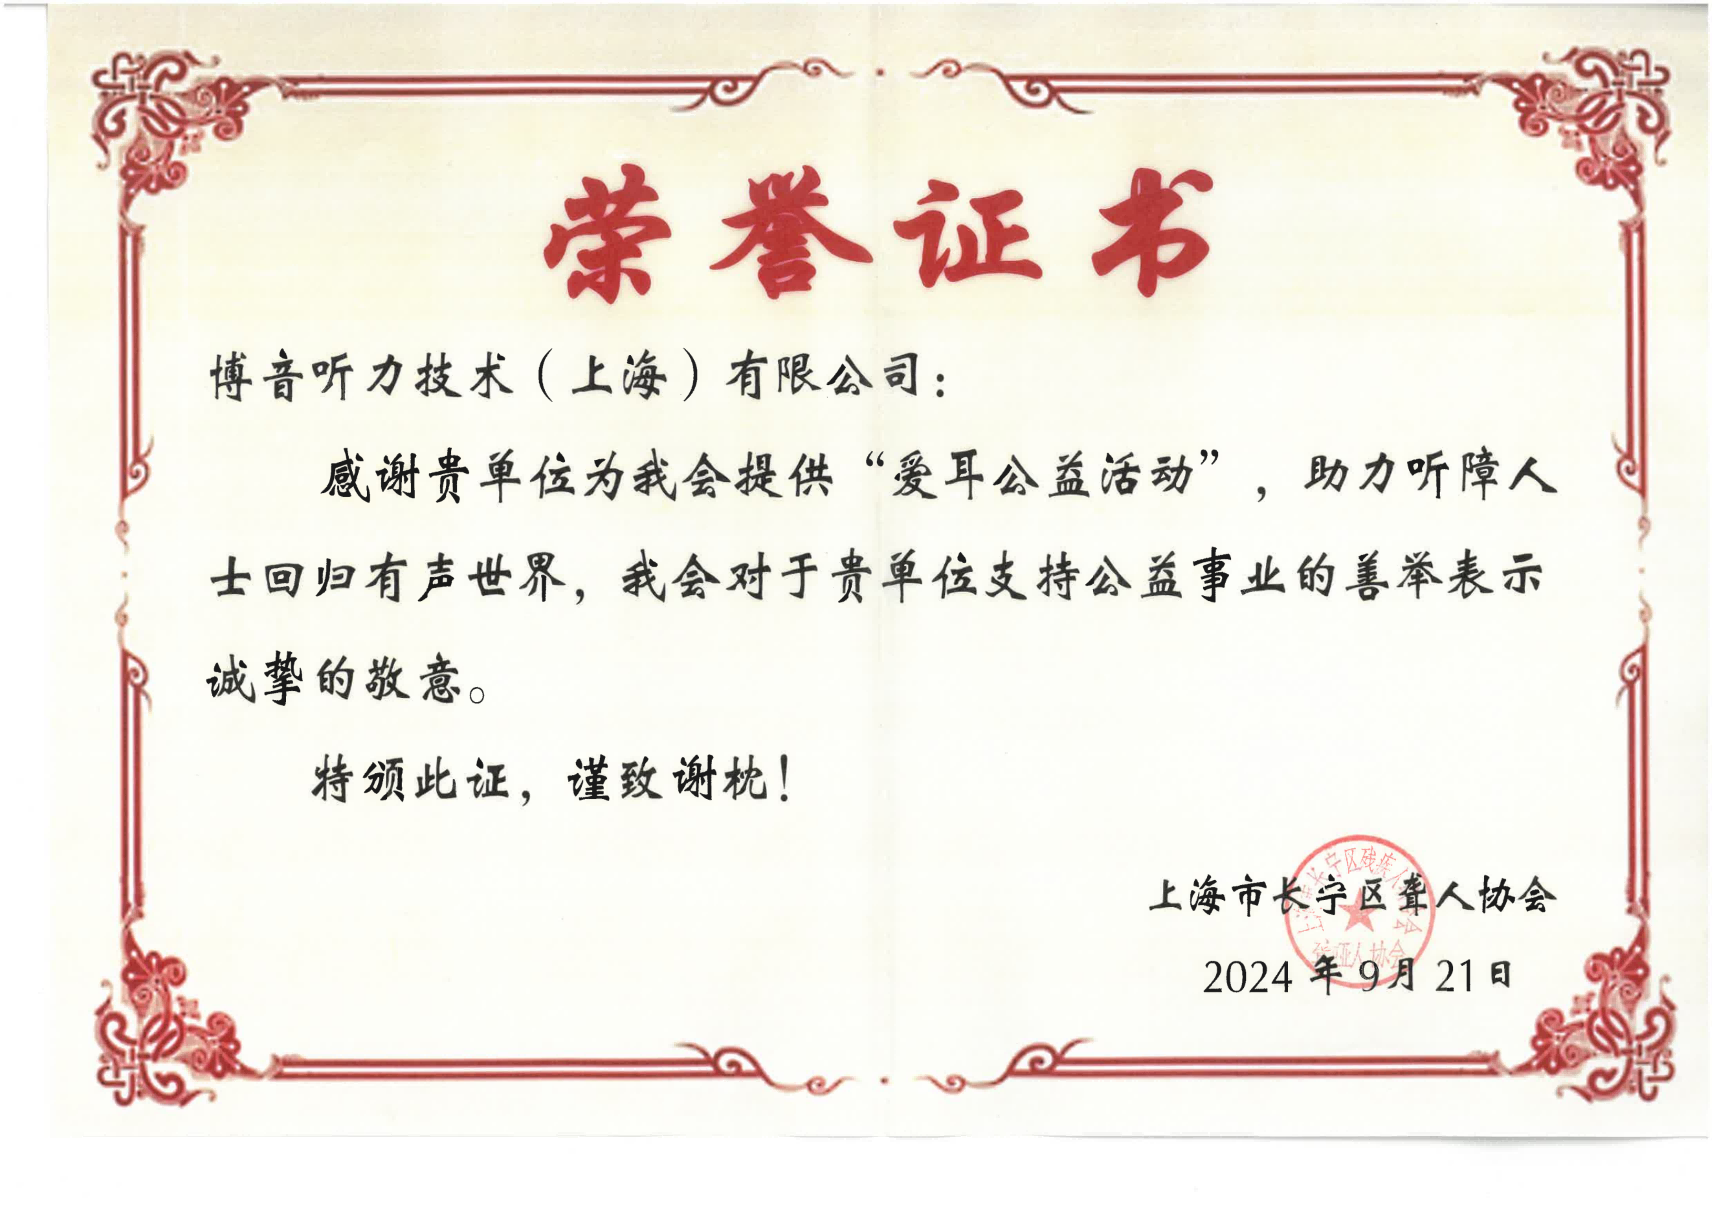 荣誉证书
博音听力技术（上海）有限公司：
感谢贵单位为我会提供“爱耳公益活动”，助力听障人
士回归有声世界，我会对于贵单位支持公益事业的善举表示
诚挚的敬意。
特颁此证，谨致谢枕！
上海市长宁区聋人协会
2024 年 9 月 21 日
上海市长宁区残疾人联合会
亚人协会